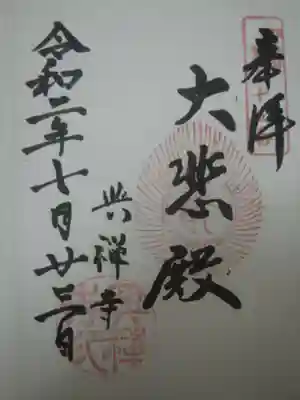 奉拝
大悲殿
興禅寺
令和二年七月廿三日